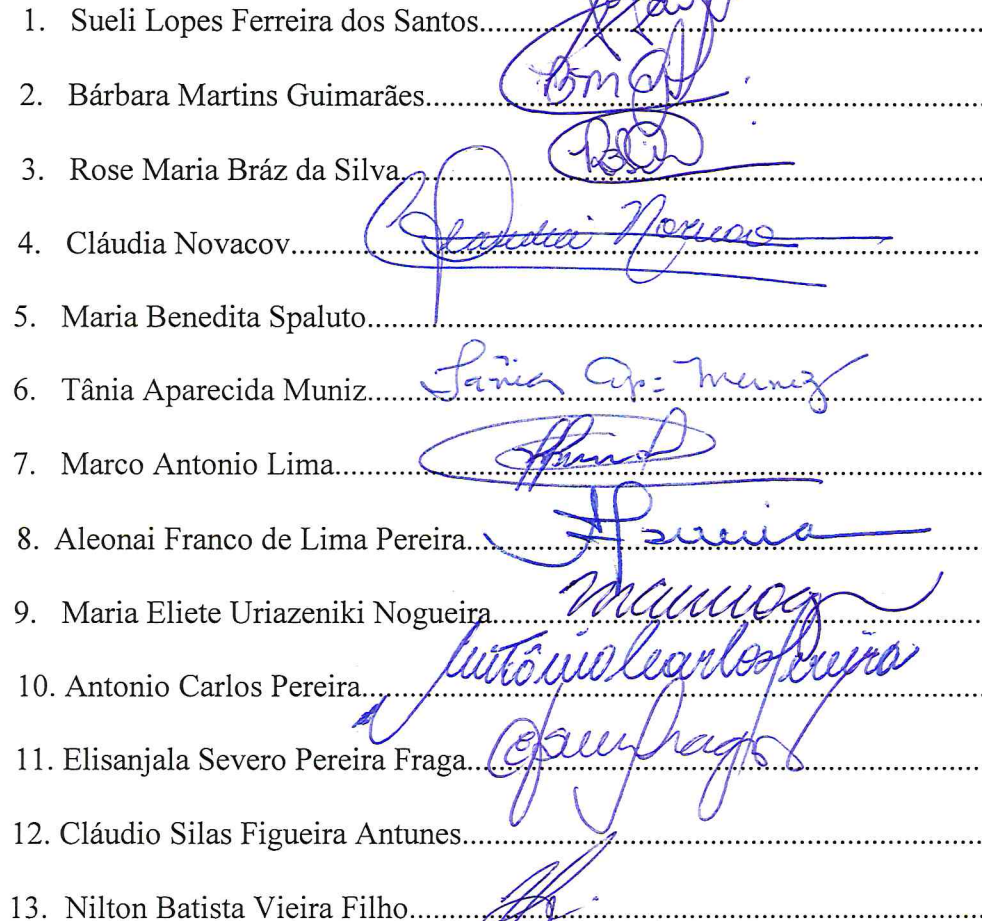 1. Sueli Lopes Ferreira dos Santos
2. Bárbara Martins Guimarães
3. Rose Maria Bráz da Silva
4. Cláudia Novacov Claudia Novacov
5. Maria Benedita Spaluto
6. Tânia Aparecida Muniz Tânia Ap: Muniz
7. Marco Antonio Lima
8. Aleonai Franco de Lima Pereira
9. Maria Eliete Uriazeniki Nogueira
10. Antonio Carlos Pereira Antônio Carlos Pereira
11. Elisanjala Severo Pereira Fraga
12. Cláudio Silas Figueira Antunes
13. Nilton Batista Vieira Filho